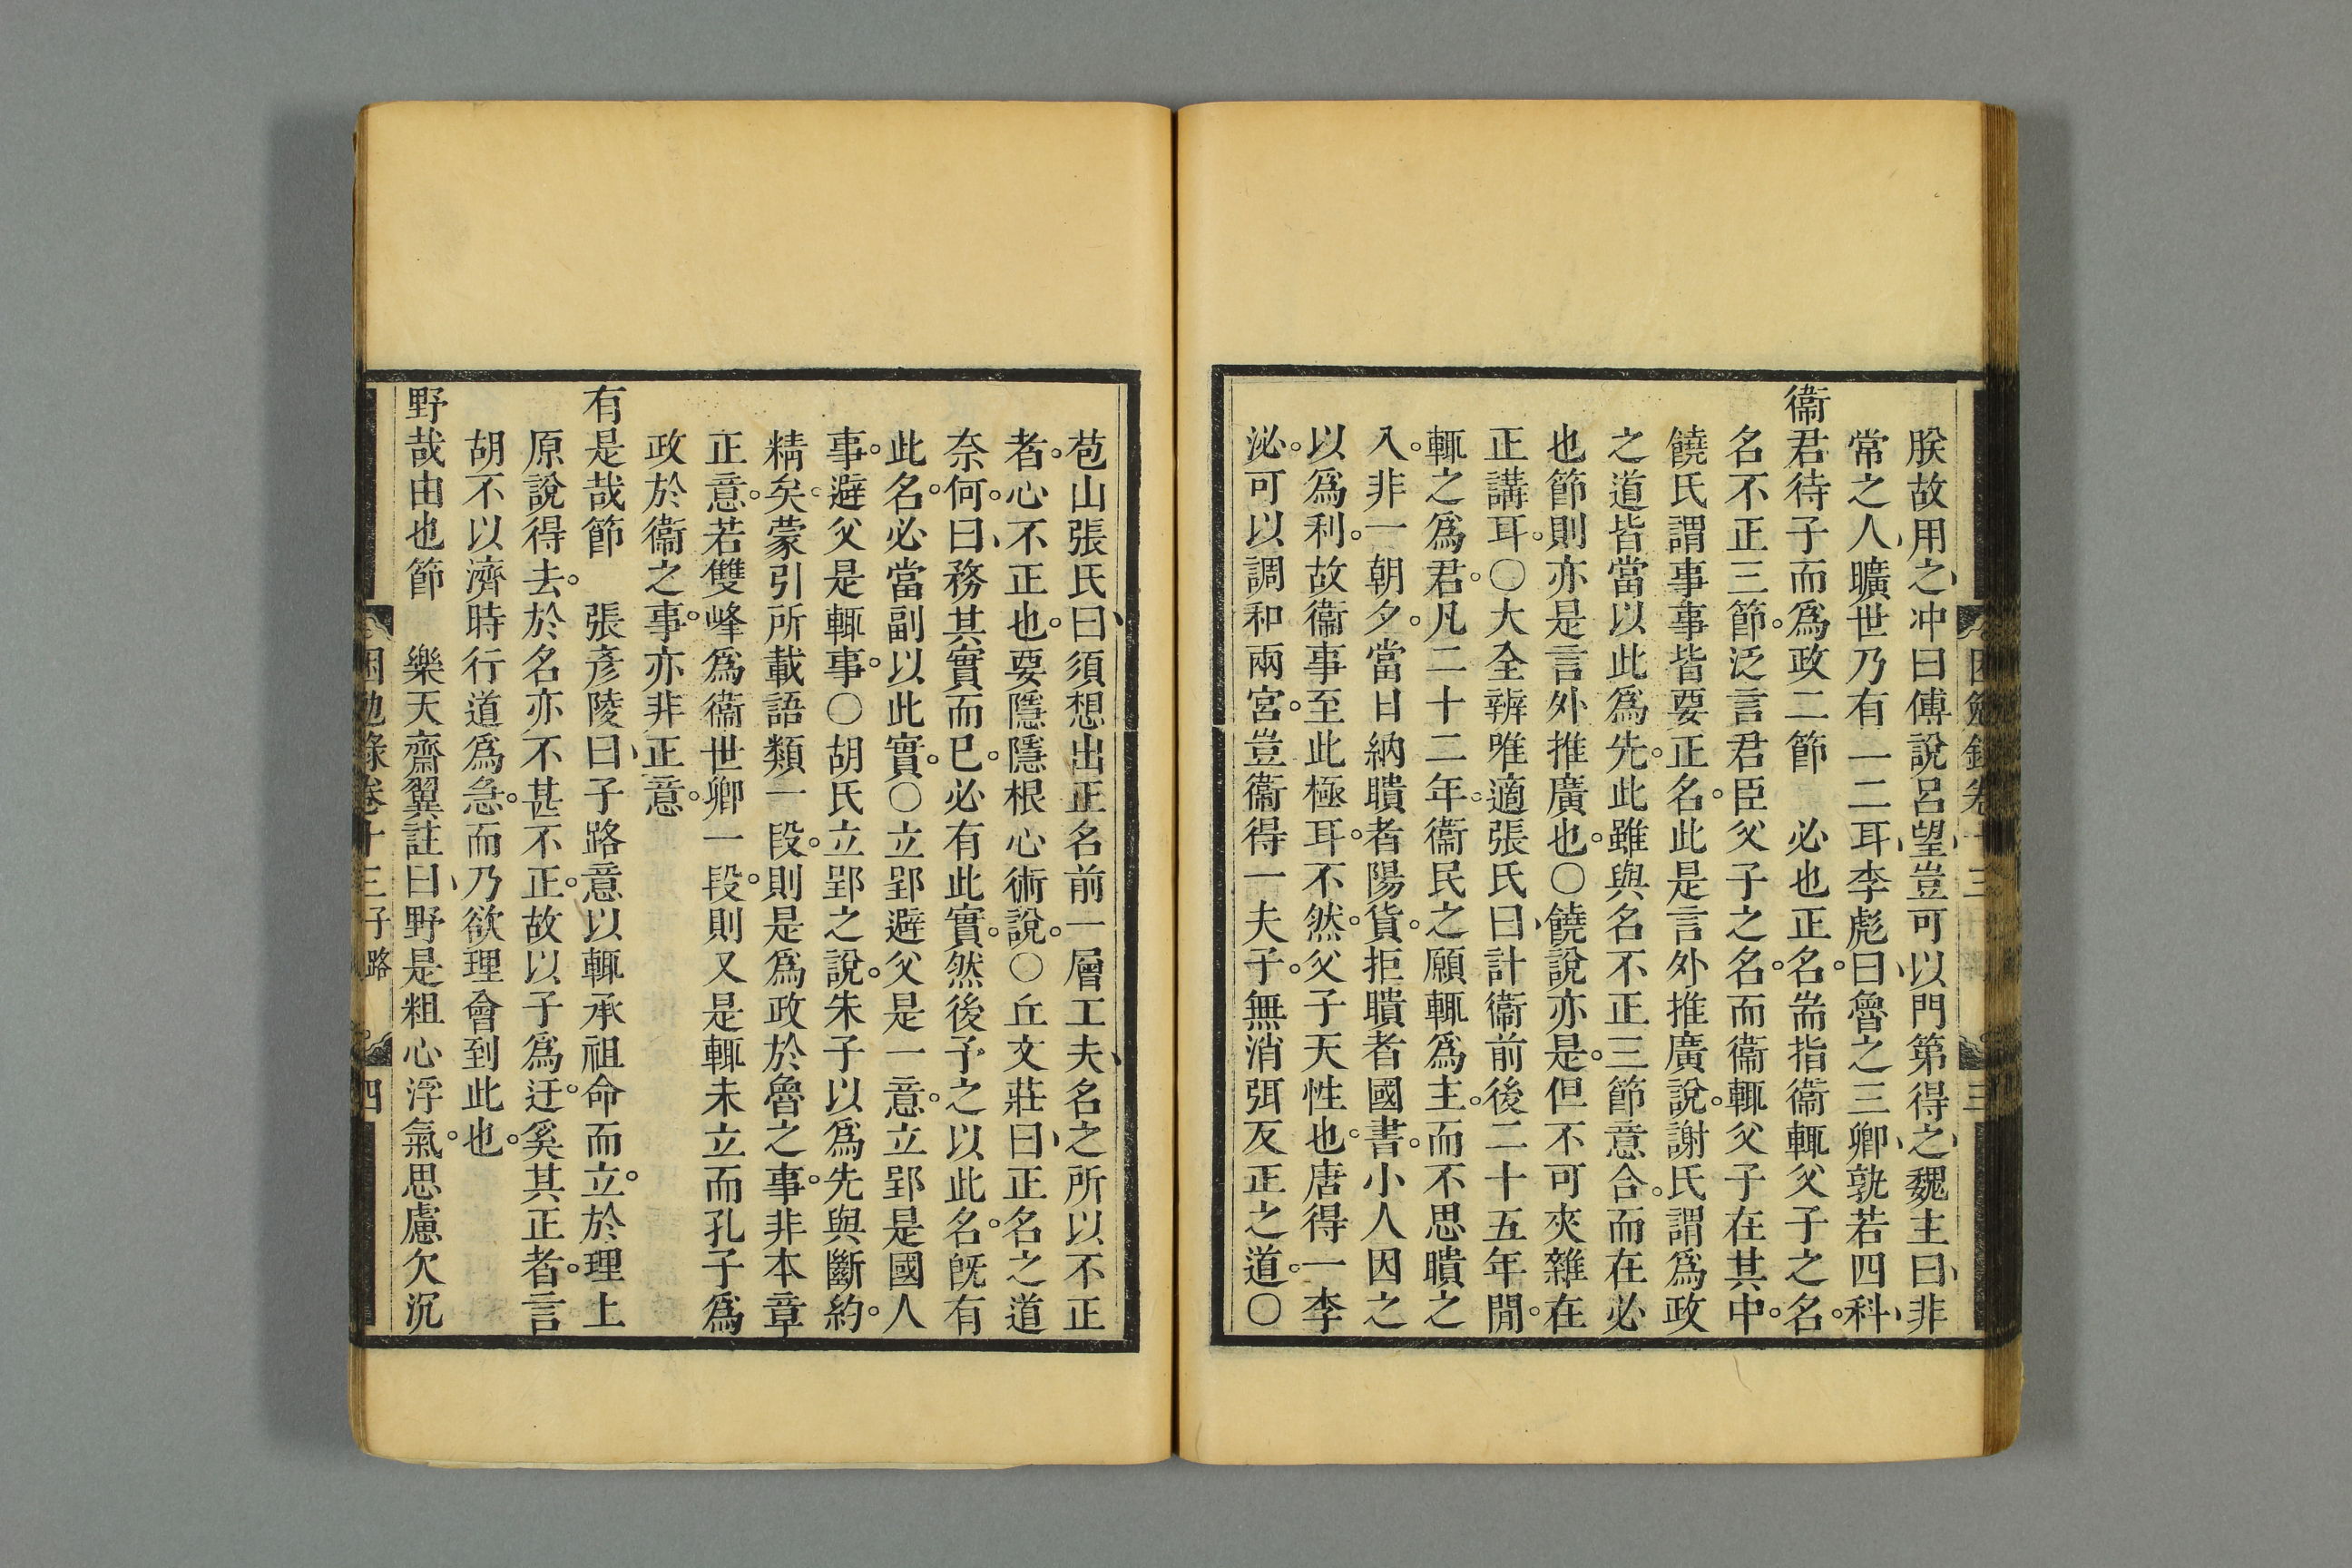 朕故用之冲曰傅說呂望豈可以門第得之魏主曰非
常之人曠世乃有一二耳李彪曰魯之三卿孰若四科
衞君待子而爲政二節　必也正名耑指衞輒父子之名
名不正三節泛言君臣父子之名而衞輒父子在其中
饒氏謂事事皆要正名此是言外推廣說謝氏謂爲政
之道皆當以此爲先此雖與名不正三節意合而在必
也節則亦是言外推廣也〇饒說亦是但不可夾雜在
正講耳〇大全辨唯適張氏曰計衞前後二十五年閒
輒之爲君凡二十二年衞民之願輒爲主而不思聵之
入非一朝夕當日納聵者陽貨拒聵者國書小人因之
以爲利故衞事至此極耳不然父子天性也唐得一李
泌可以調和兩宮豈衞得一夫子無消弭反正之道〇
困勉錄卷十三　三
苞山張氏曰須想出正名前一層工夫名之所以不正
者心不正也要隱隱根心術說〇丘文莊曰正名之道
奈何曰務其實而已必有此實然後予之以此名旣有
此名必當副以此實〇立郢避父是一意立郢是國人
事避父是輒事〇胡氏立郢之說朱子以爲先與斷約
精矣蒙引所載語類一段則是爲政於魯之事非本章
正意若雙峰爲衞世卿一段則又是輒未立而孔子爲
政於衞之事亦非正意
有是哉節　張彥陵曰子路意以輒承祖命而立於理上
原說得去於名亦不甚不正故以子爲迂奚其正者言
胡不以濟時行道爲急而乃欲理會到此也
野哉由也節　樂天齋翼註曰野是粗心浮氣思慮欠沉
困勉錄卷十三子路　四